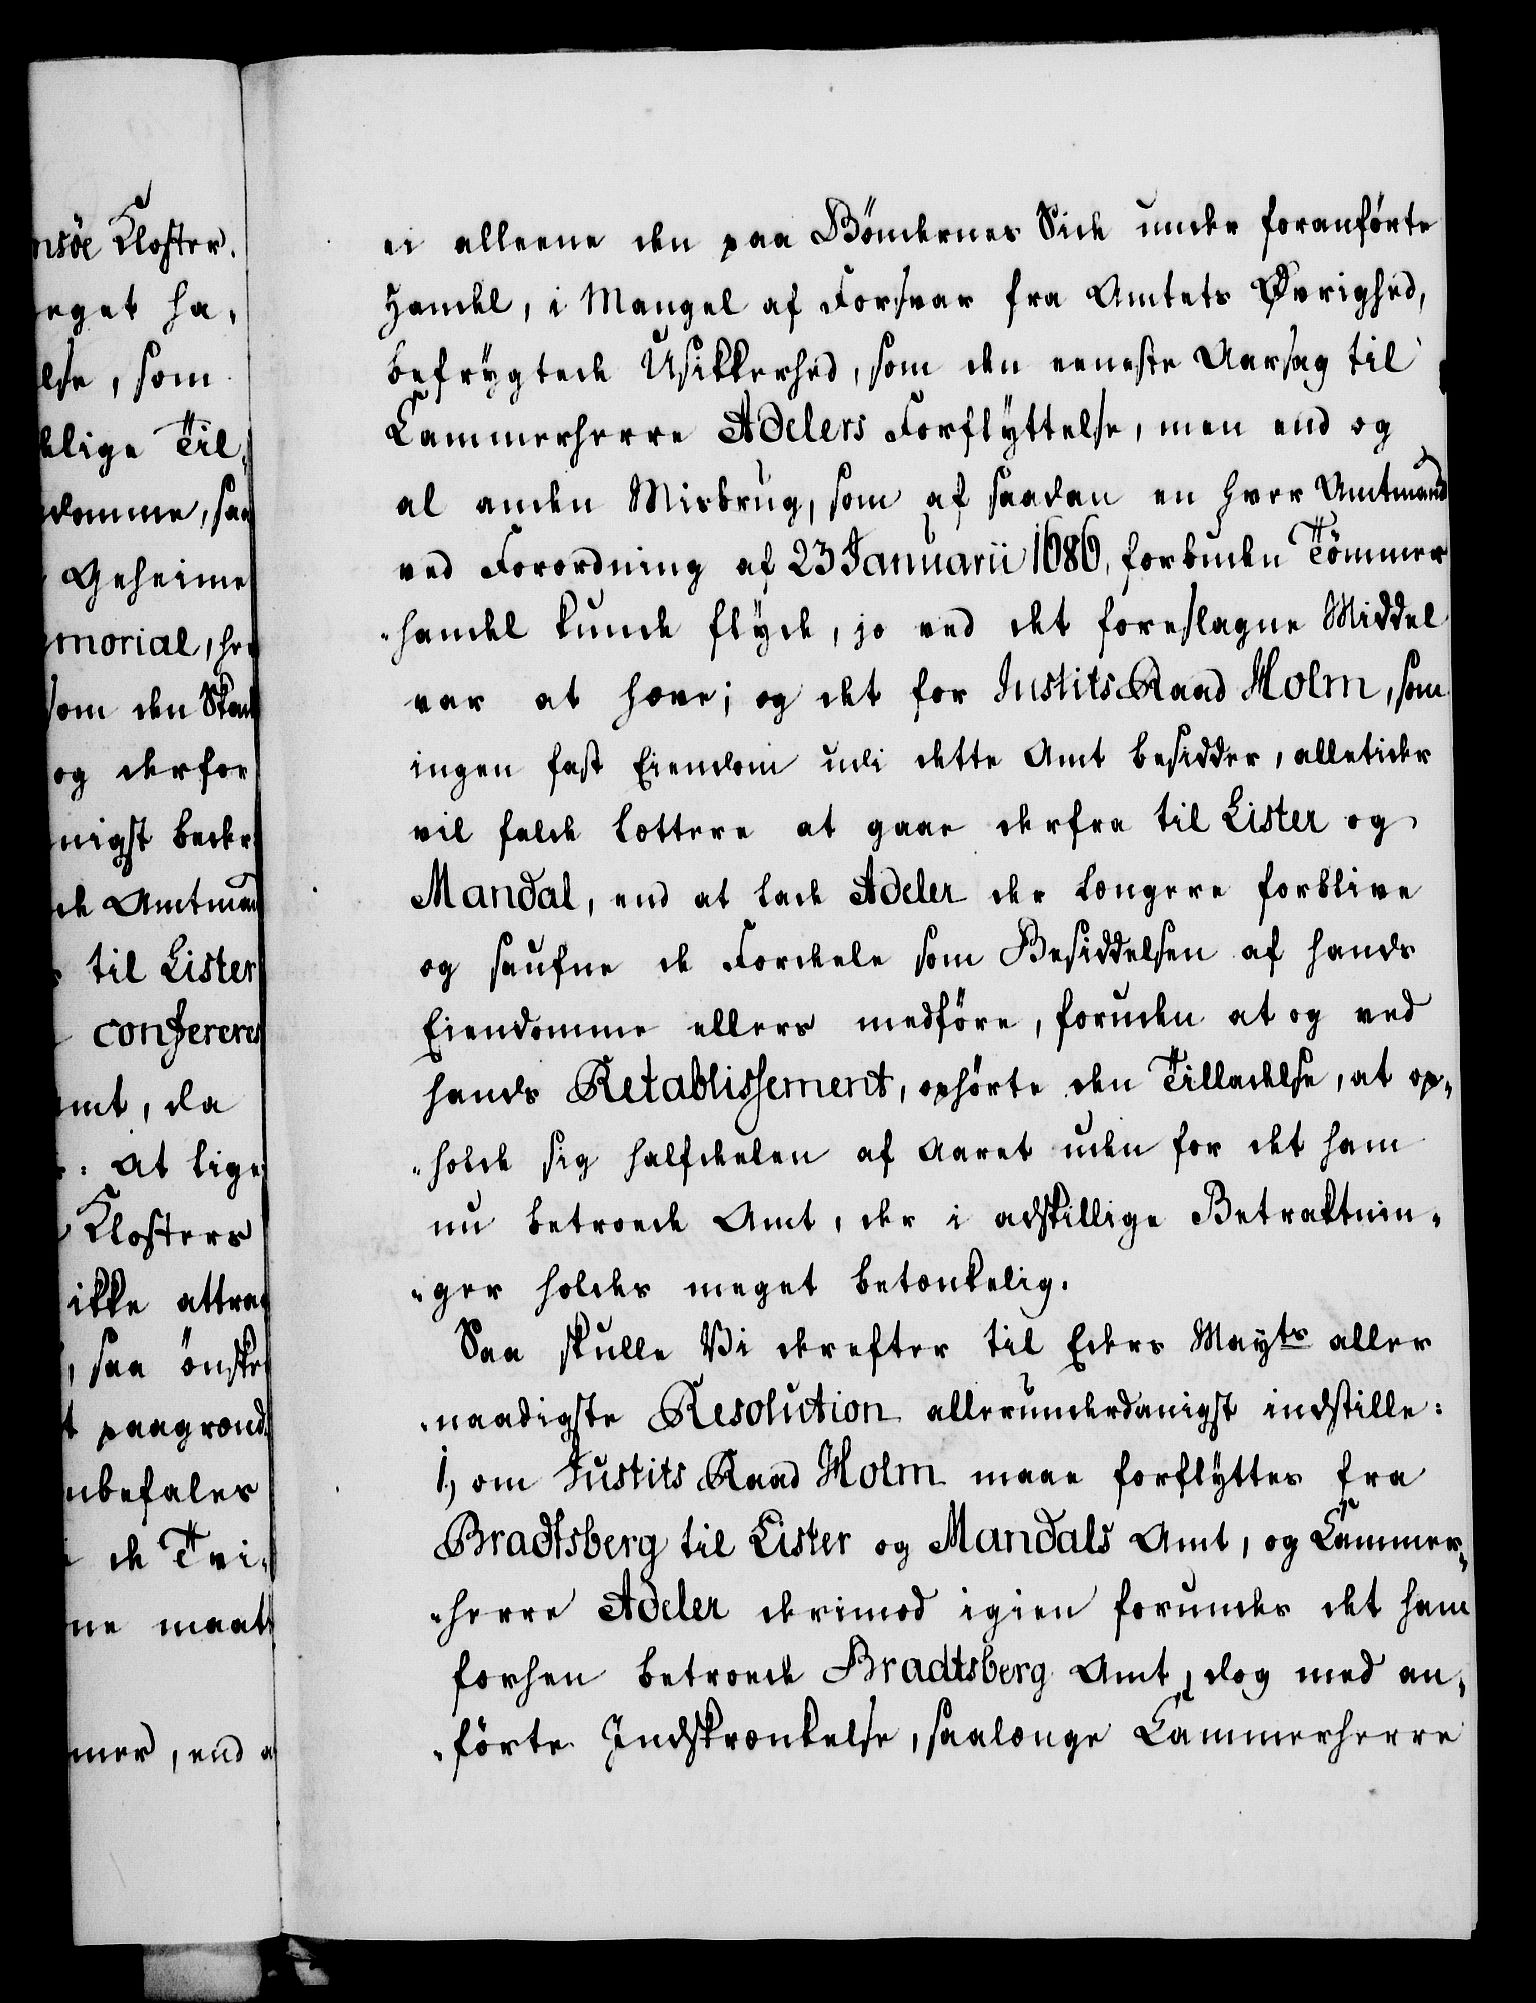 nsöe Kloster.
eget ha,
else, som
elige Til,
domme, saa
Geheime
morial, her
som den Skand
og derfor
nigst beder
de Amtmand
til Lister
confereres
Amt, da
: At lige
Klosters
ikke attra
, saa önske
t paagrond
nbefales
i de Tvi,
ne maatt
mer, end a
ei alleene den paa Böndernes Side under foranförte
Handel, i Mangel af Forsvar fra Amtets Øvrighed,
befrygtede Usikkerhed, som den eeneste Aarsag til
Cammerherre Adelers Forflyttelse, men end og
al anden Misbrug, som af saadan en hver Amtmand
ved Forordning af 23 Januarii 1686, forbuden Tömmer
„handel kunde flyde, jo ved det foreslagne Middel
var at hæve; og det for Justits Raad Holm, som
ingen fast Eiendom udi dette Amt besidder, alletider
vil falde lættere at gaae derfra til Lister og
Mandal, end at lade Adeler der længere forblive
og saufne de Fordeele som Besiddelsen af hands
Eiendomme ellers medföre, foruden at og ved
hands Retablissement, ophörte den Tilladelse, at op„
„holde sig halfdeelen af Aaret uden for det ham
nu betroede Amt, der i adskillige Betraktnin„
„ger holdes meget betænkelig.
Saa skulle Vi derefter til Eders Mayts aller
„naadigste Resolution allerunderdanigst indstille:
1, om Justits Raad Holm maae forflyttes fra
Bradtsberg til Lister og Mandals Amt, og Cammer„
„herre Adeler derimod igien forundes det ham
forhen betroede Bradtsberg Amt, dog med an„
„förte Indskrænkelse, saalænge Cammerherre